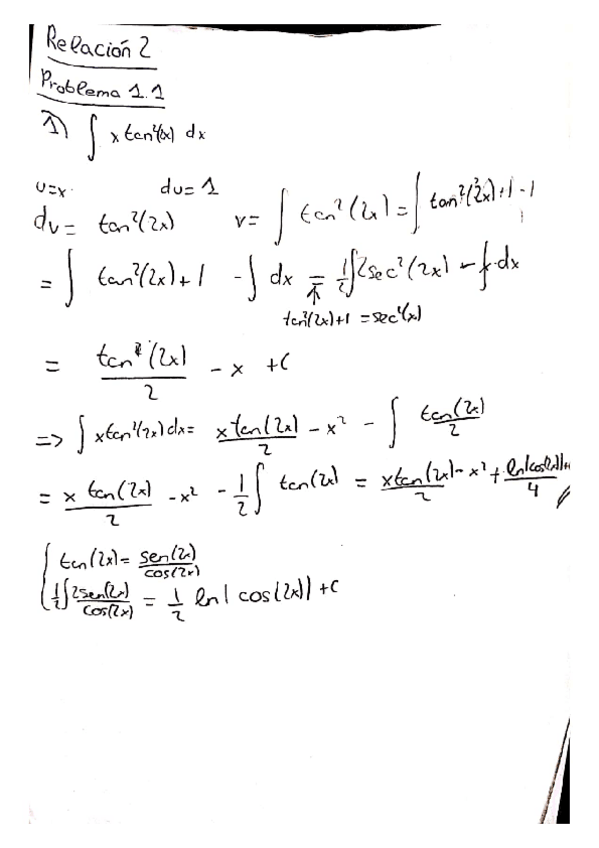 Relación 2
Problema 1.1
1) ∫ x tan²(x) dx
u=x. du= 1
dv= tan²(2x) v= ∫ tan²(2x) = ∫ tan²(2x)+1-1
= ∫ tan²(2x)+1 - ∫ dx = ½∫2sec²(2x) - ∫ dx
↑
tan²(2x)+1 = sec²(x)
= tan(2x)/2 - x + C
=> ∫ x tan²(2x) dx = x tan(2x)/2 - x² - ∫ tan(2x)/2
= x tan(2x)/2 - x² - 1/2 ∫ tan(2x) = x tan(2x)/2 - x² + ln|cos(2x)|+/4
{ tan(2x) = sen(2x)/cos(2x)
1/2 ∫ 2sen(2x)/cos(2x) = 1/2 ln| cos(2x)| + C